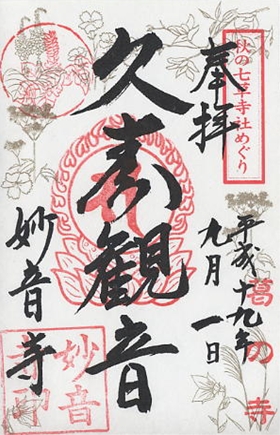 秋の七草寺社めぐり
奉拝
平成十九年
九月一日
葛の寺
久寿観音
妙音寺
妙音